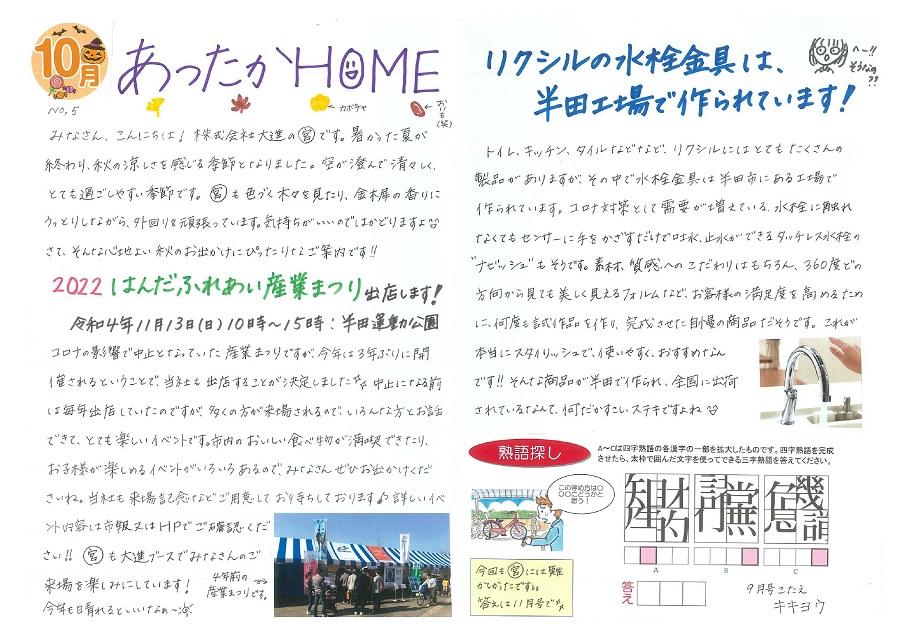 10月
あったかHOME
No.5
← カボチャ
← おいも(笑)
みなさん、こんにちは! 株式会社大進の宮です。暑かった夏が
終わり、秋の涼しさを感じる季節となりました。空が澄んで清々しく、
とても過ごしやすい季節です。宮も色づく木々を見たり、金木犀の香りに
うっとりしながら、外回りを頑張っています。気持ちがいいのではかどりますよ
さて、そんな心地よい秋のお出かけにぴったりなご案内です!!
2022 はんだふれあい産業まつり 出店します!
令和4年11月13日(日)10時〜15時:半田運動公園
コロナの影響で中止となっていた産業まつりですが、今年は3年ぶりに開
催されるということで、当社も出店することが決定しました 中止になる前
は毎年出店していたのですが、多くの方が来場されるので、いろんな方とお話
できて、とても楽しいイベントです。市内のおいしい食べ物が満喫できたり、
お子様が楽しめるイベントがいろいろあるので、みなさんぜひお出かけくだ
さいね。当社も来場記念などご用意してお待ちしております 詳しいイベ
ント内容は市報又はHPでご確認くだ
さい!! 宮も大進ブースでみなさんのご
来場を楽しみにしています!
今年も日有れるといいなぁ〜
4年前の
産業まつりです。
リクシルの水栓金具は、
半田工場で作られています!
へー!!
そうなの??
トイレ、キッチン、タイルなどなど、リクシルにはとてもたくさんの
製品がありますが、その中で水栓金具は半田市にある工場で
作られています。コロナ対策として需要が増えている、水栓に触れ
なくてもセンサーに手をかざすだけで吐水、止水ができるタッチレス水栓の
"ナビッシュ"もそうです。素材、質感へのこだわりはもちろん、360度どの
方向から見ても美しく見えるフォルムなど、お客様の満足度を高めるため
に、何度も試作品を作り、完成させた自慢の商品だそうです。これが
本当にスタイリッシュで、使いやすく、おすすめなん
です!! そんな商品が半田で作られ、全国に出荷
されているなんて、何だかすごいステキですよね
熟語探し
A〜Cは四字熟語の各漢字の一部を拡大したものです。四字熟語を完成
させたら、太枠で囲んだ文字を使ってできる三字熟語を答えてください。
この停め方は○
○○にどうかと
思う!
今回も宮には難
しかったです
答えは11月号で
A
B
C
答え
9月号こたえ
キキョウ